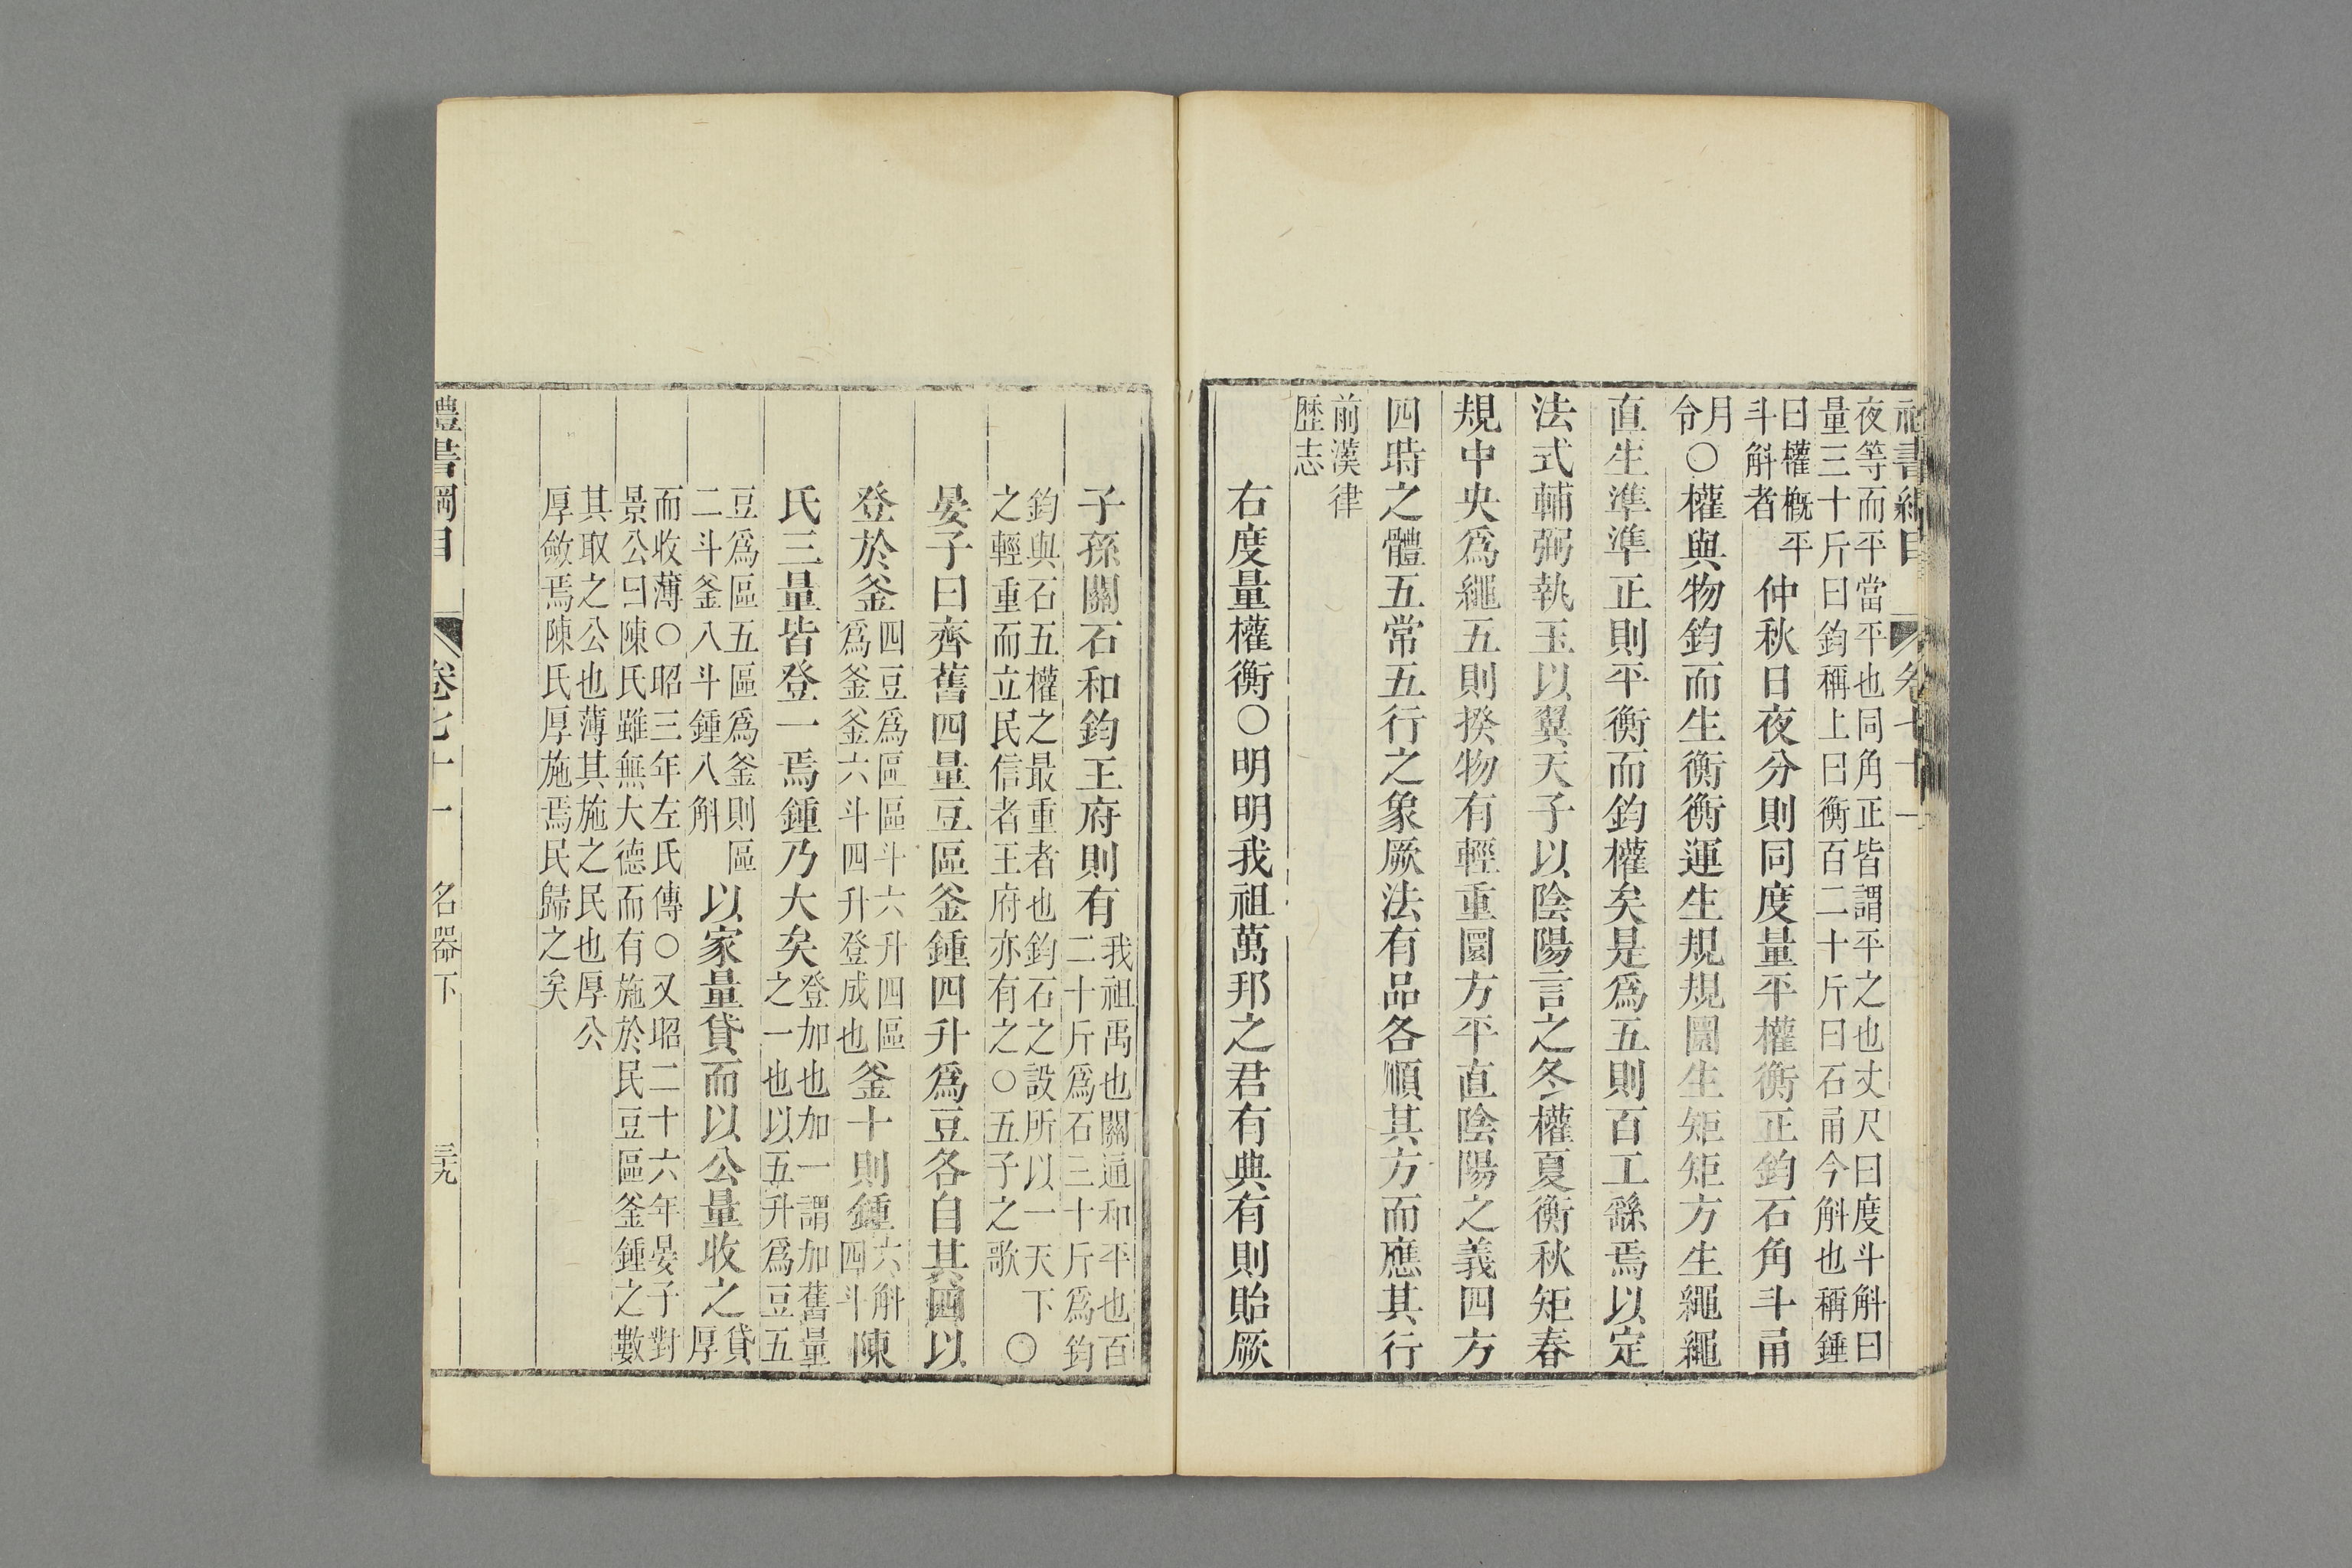 禮書綱目 卷七十一
夜等而平當平也同角正皆謂平之也丈尺曰度斗斛曰
量三十斤曰鈞稱上曰衡百二十斤曰石甬今斛也稱錘
曰權概平
斗斛者
仲秋日夜分則同度量平權衡正鈞石角斗甬
月
令
○權與物鈞而生衡衡運生規規圜生矩矩方生繩繩
直生準準正則平衡而鈞權矣是爲五則百工繇焉以定
法式輔弼執玉以翼天子以陰陽言之冬權夏衡秋矩春
規中央爲繩五則揆物有輕重圜方平直陰陽之義四方
四時之體五常五行之象厥法有品各順其方而應其行
前漢律
歷志
右度量權衡○明明我祖萬邦之君有典有則貽厥
子孫關石和鈞王府則有
我祖禹也關通和平也百
二十斤爲石三十斤爲鈞
鈞與石五權之最重者也鈞石之設所以一天下
之輕重而立民信者王府亦有之○五子之歌
○
晏子曰齊舊四量豆區釜鍾四升爲豆各自其四以
登於釜
四豆爲區區斗六升四區
爲釜釜六斗四升登成也
釜十則鍾
六斛
四斗
陳
氏三量皆登一焉鍾乃大矣
登加也加一謂加舊量
之一也以五升爲豆五
豆爲區五區爲釜則區
二斗釜八斗鍾八斛
以家量貸而以公量收之
貸
厚
而收薄○昭三年左氏傳○又昭二十六年晏子對
景公曰陳氏雖無大德而有施於民豆區釜鍾之數
其取之公也薄其施之民也厚公
厚斂焉陳氏厚施焉民歸之矣
禮書綱目 卷七十一 名器下 三九